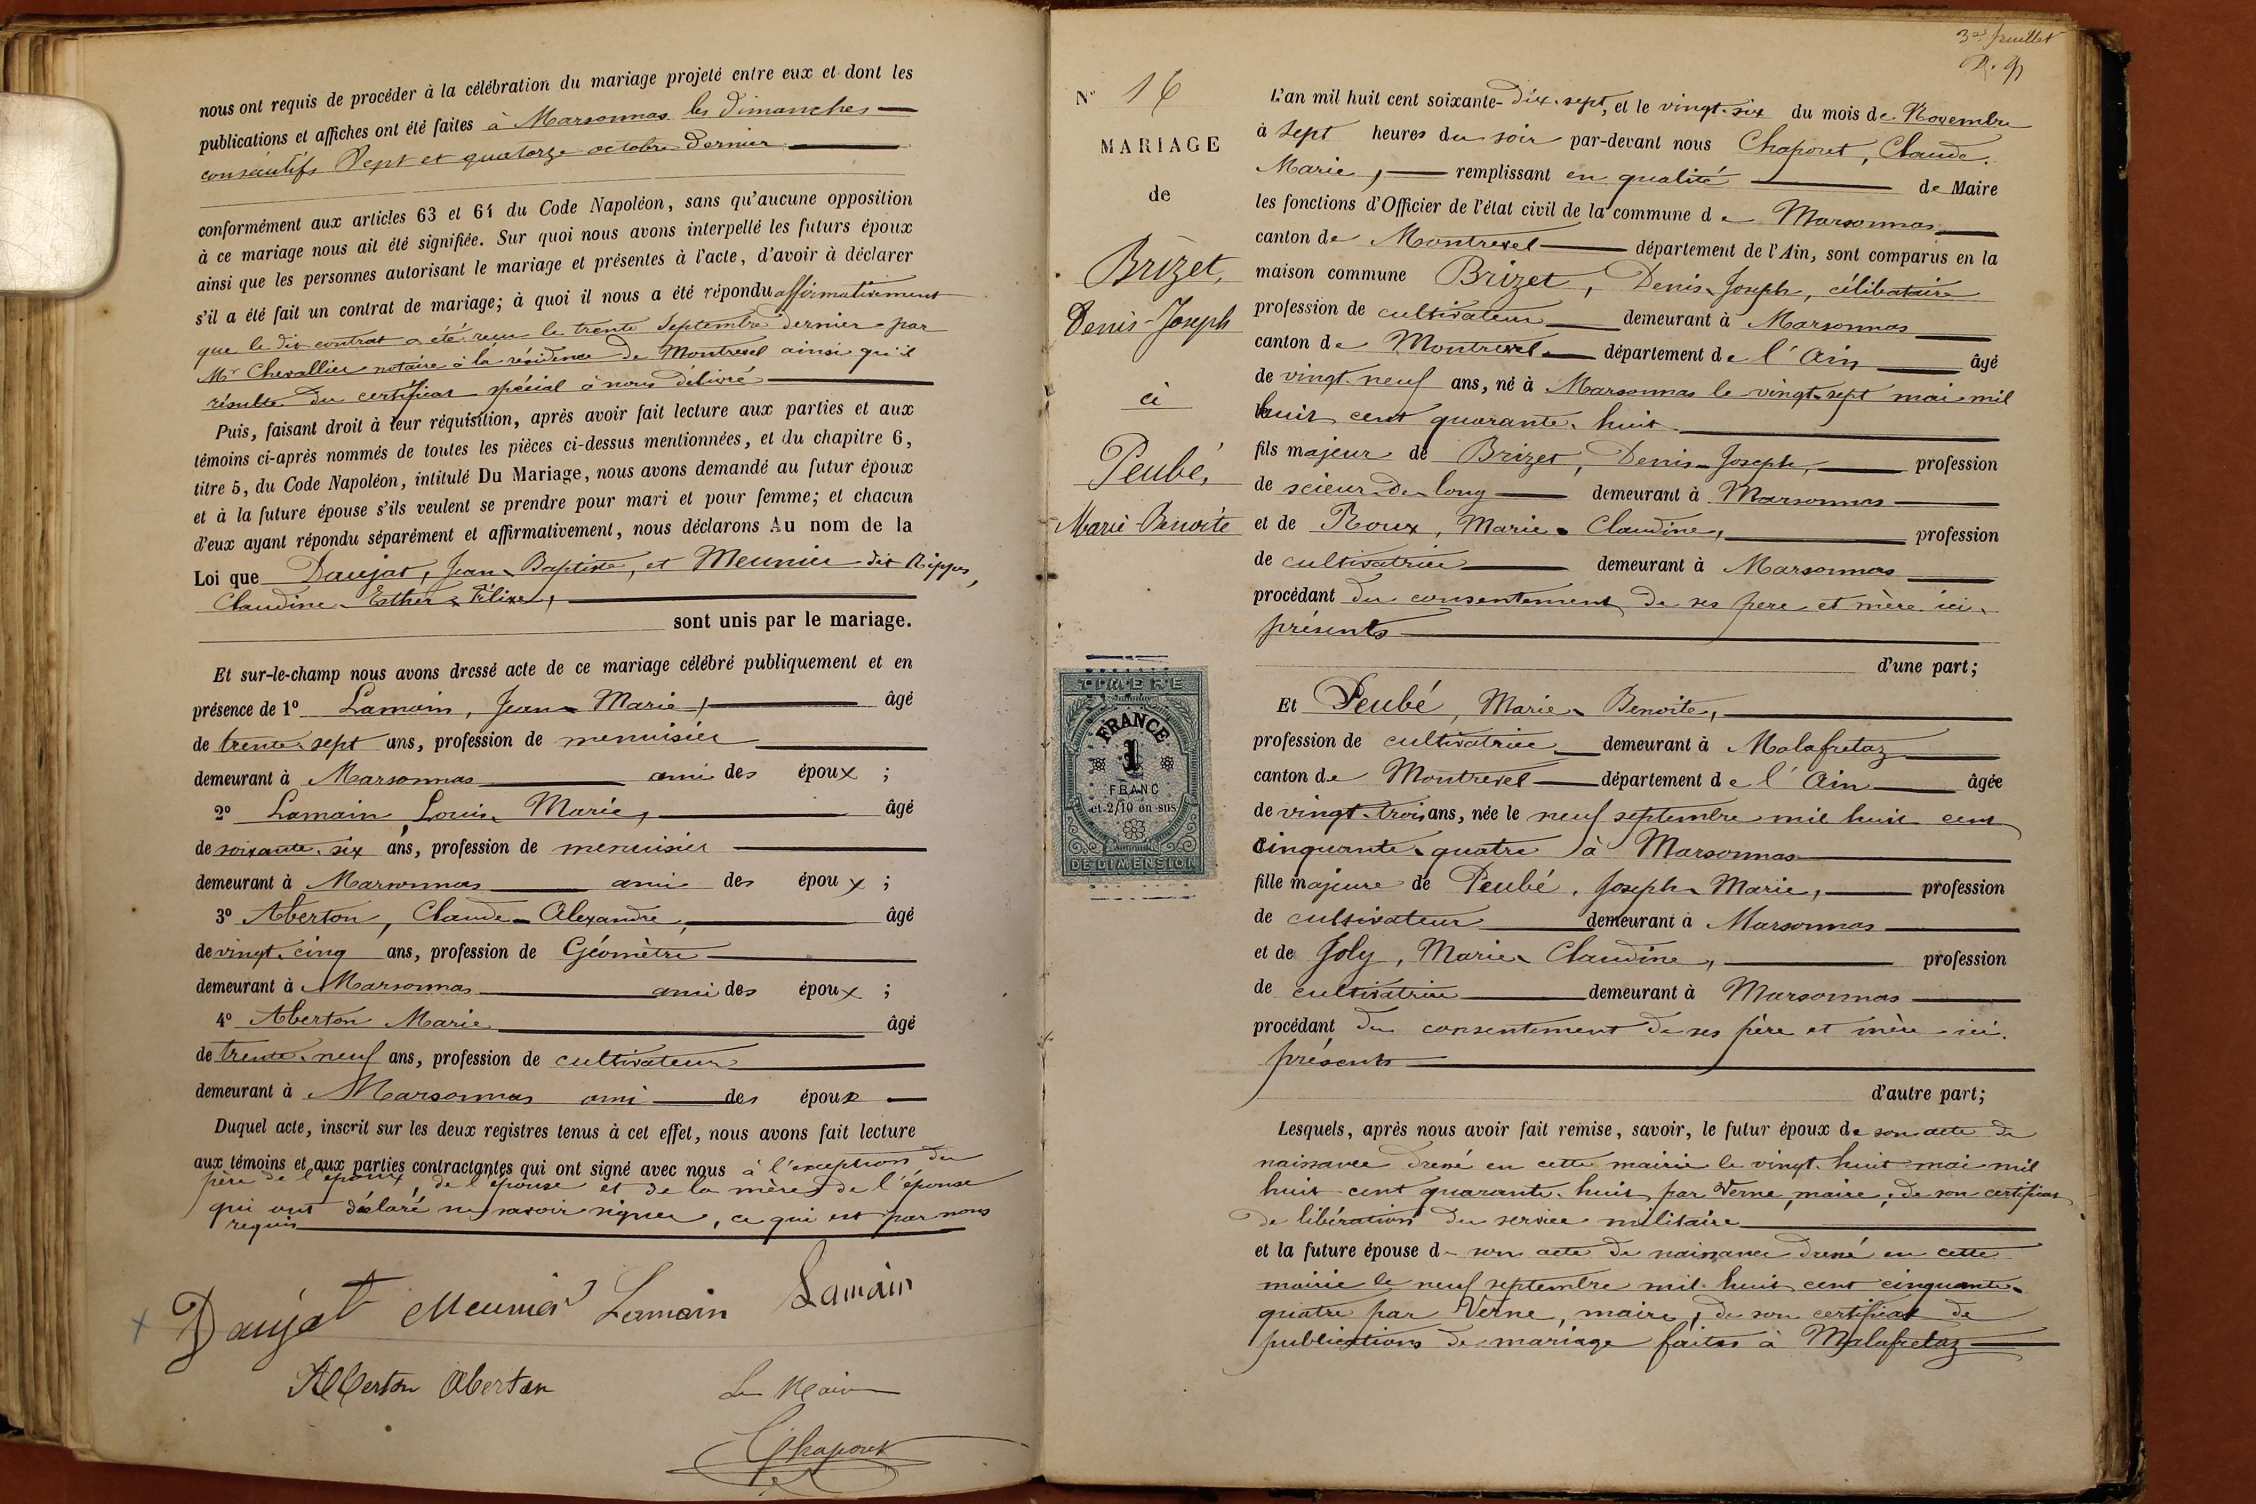 nous ont requis de procéder à la célébration du mariage projeté entre eux et dont les
publications et affiches ont été faites à Marsonnas les dimanches
consécutifs Sept et quatorze octobre dernier
conformément aux articles 63 et 64 du Code Napoléon, sans qu'aucune opposition
à ce mariage nous ait été signifiée. Sur quoi nous avons interpellé les futurs époux
ainsi que les personnes autorisant le mariage et présentes à l'acte, d'avoir à déclarer
s'il a été fait un contrat de mariage; à quoi il nous a été répondu affirmativement
que le dit contrat a été reçu le trente Septembre dernier par
Mr Chevallier notaire à la résidence de Montrevel ainsi qu'il
résulte du certificat spécial à nous délivré
Puis, faisant droit à leur réquisition, après avoir fait lecture aux parties et aux
témoins ci-après nommés de toutes les pièces ci-dessus mentionnées, et du chapitre 6,
titre 5, du Code Napoléon, intitulé Du Mariage, nous avons demandé au futur époux
et à la future épouse s'ils veulent se prendre pour mari et pour femme; et chacun
d'eux ayant répondu séparément et affirmativement, nous déclarons Au nom de la
Loi que Daujat, Jean-Baptiste, et Meunier dit Rippes,
Claudine-Esther-Félixe,
sont unis par le mariage.
Et sur-le-champ nous avons dressé acte de ce mariage célébré publiquement et en
présence de 1º Lamain, Jean-Marie, âgé
de trente-sept ans, profession de menuisier
demeurant à Marsonnas ami des époux ;
2º Lamain, Louis-Marie, âgé
de soixante-six ans, profession de menuisier
demeurant à Marsonnas ami des époux ;
3º Aberton, Claude-Alexandre, âgé
de vingt-cinq ans, profession de Géomètre
demeurant à Marsonnas ami des époux ;
4º Aberton Marie âgé
de trente-neuf ans, profession de cultivateur
demeurant à Marsonnas ami des époux
Duquel acte, inscrit sur les deux registres tenus à cet effet, nous avons fait lecture
aux témoins et aux parties contractantes qui ont signé avec nous à l'exception du
père de l'époux, de l'épouse et de la mère de l'épouse
qui ont déclaré ne savoir signer, ce qui est par nous
requis
Daujat Meunier Lamain Lamain
Aberton Aberton
Le Maire
Chaponet
3e feuillet
No 16
MARIAGE
de
Brizet,
Denis-Joseph
à
Peubé,
Marie-Benoite
TIMBRE
FRANCE
1
FRANC
et 2/10 en sus
DE DIMENSION
L'an mil huit cent soixante-dix-sept, et le vingt-six du mois de Novembre
à sept heures du soir par-devant nous Chaponet, Claude-
Marie, remplissant en qualité de Maire
les fonctions d'Officier de l'état civil de la commune de Marsonnas
canton de Montrevel département de l'Ain, sont comparus en la
maison commune Brizet, Denis-Joseph, célibataire
profession de cultivateur demeurant à Marsonnas
canton de Montrevel département de l'Ain âgé
de vingt-neuf ans, né à Marsonnas le vingt-sept mai mil
huit cent quarante-huit
fils majeur de Brizet, Denis-Joseph, profession
de scieur de long demeurant à Marsonnas
et de Roux, Marie-Claudine, profession
de cultivatrice demeurant à Marsonnas
procédant du consentement de ses père et mère ici
présents
d'une part;
Et Peubé, Marie-Benoite,
profession de cultivatrice demeurant à Malafretaz
canton de Montrevel département de l'Ain âgée
de vingt-trois ans, née le neuf septembre mil huit cent
cinquante-quatre à Marsonnas
fille majeure de Peubé, Joseph-Marie, profession
de cultivateur demeurant à Marsonnas
et de Joly, Marie-Claudine, profession
de cultivatrice demeurant à Marsonnas
procédant du consentement de ses père et mère ici
présents
d'autre part;
Lesquels, après nous avoir fait remise, savoir, le futur époux de son acte de
naissance dressé en cette mairie le vingt-huit mai mil
huit cent quarante-huit par Verne, maire, de son certificat
de libération du service militaire
et la future épouse de son acte de naissance dressé en cette
mairie le neuf septembre mil huit cent cinquante-
quatre par Verne, maire, de son certificat de
publications de mariage faites à Malafretaz